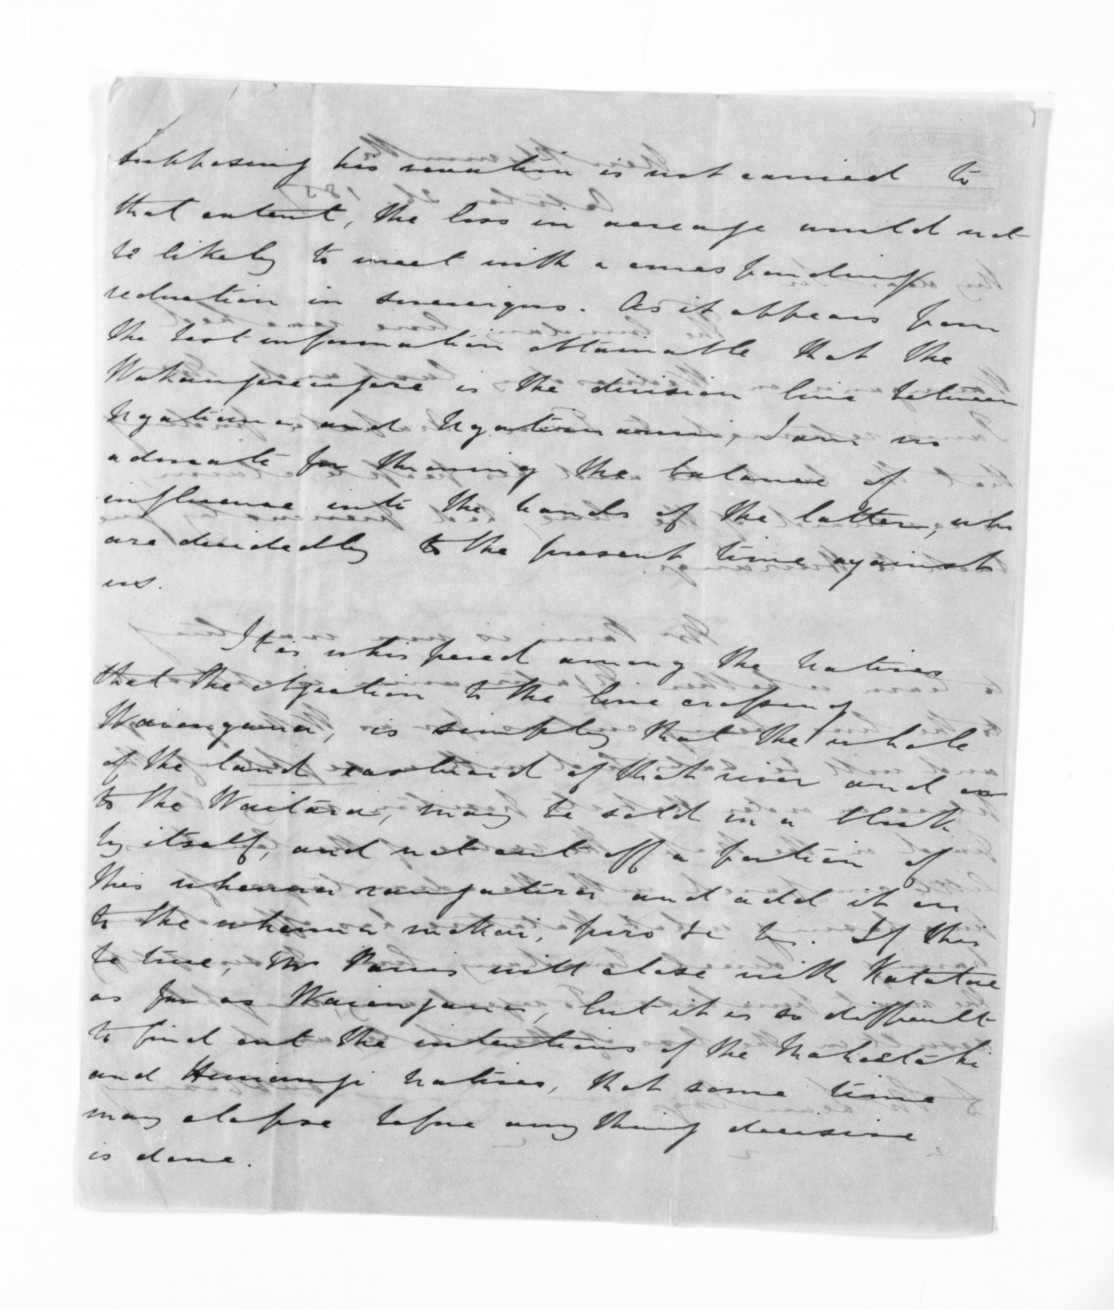 supposing his vexation is not carried to
that extent, the loss in acreage would not
be likely to meet with a corresponding
reduction in sovereigns. As it appears from
the best information obtainable that the
is the division line between
Ngatiawa and Ngatimaru, I am no
advocate for throwing the balance of
influence into the hands of the latter, who
are decidedly to the present time against
us.
It is whispered among the Natives
that the objection to the line crossing
Waiongona, is simply that the whole
of the land eastward of that river and on
to the Waitara, may be sold in a block
by itself, and not cut off a portion of
this whenua rangatira and add it on
to the whenua
be true, Mr Parris will close with Katatore
as far as Waiongona, but it is so difficult
to find out the intentions of the
and Huirangi Natives, that some time
may elapse before any thing decisive
is done.